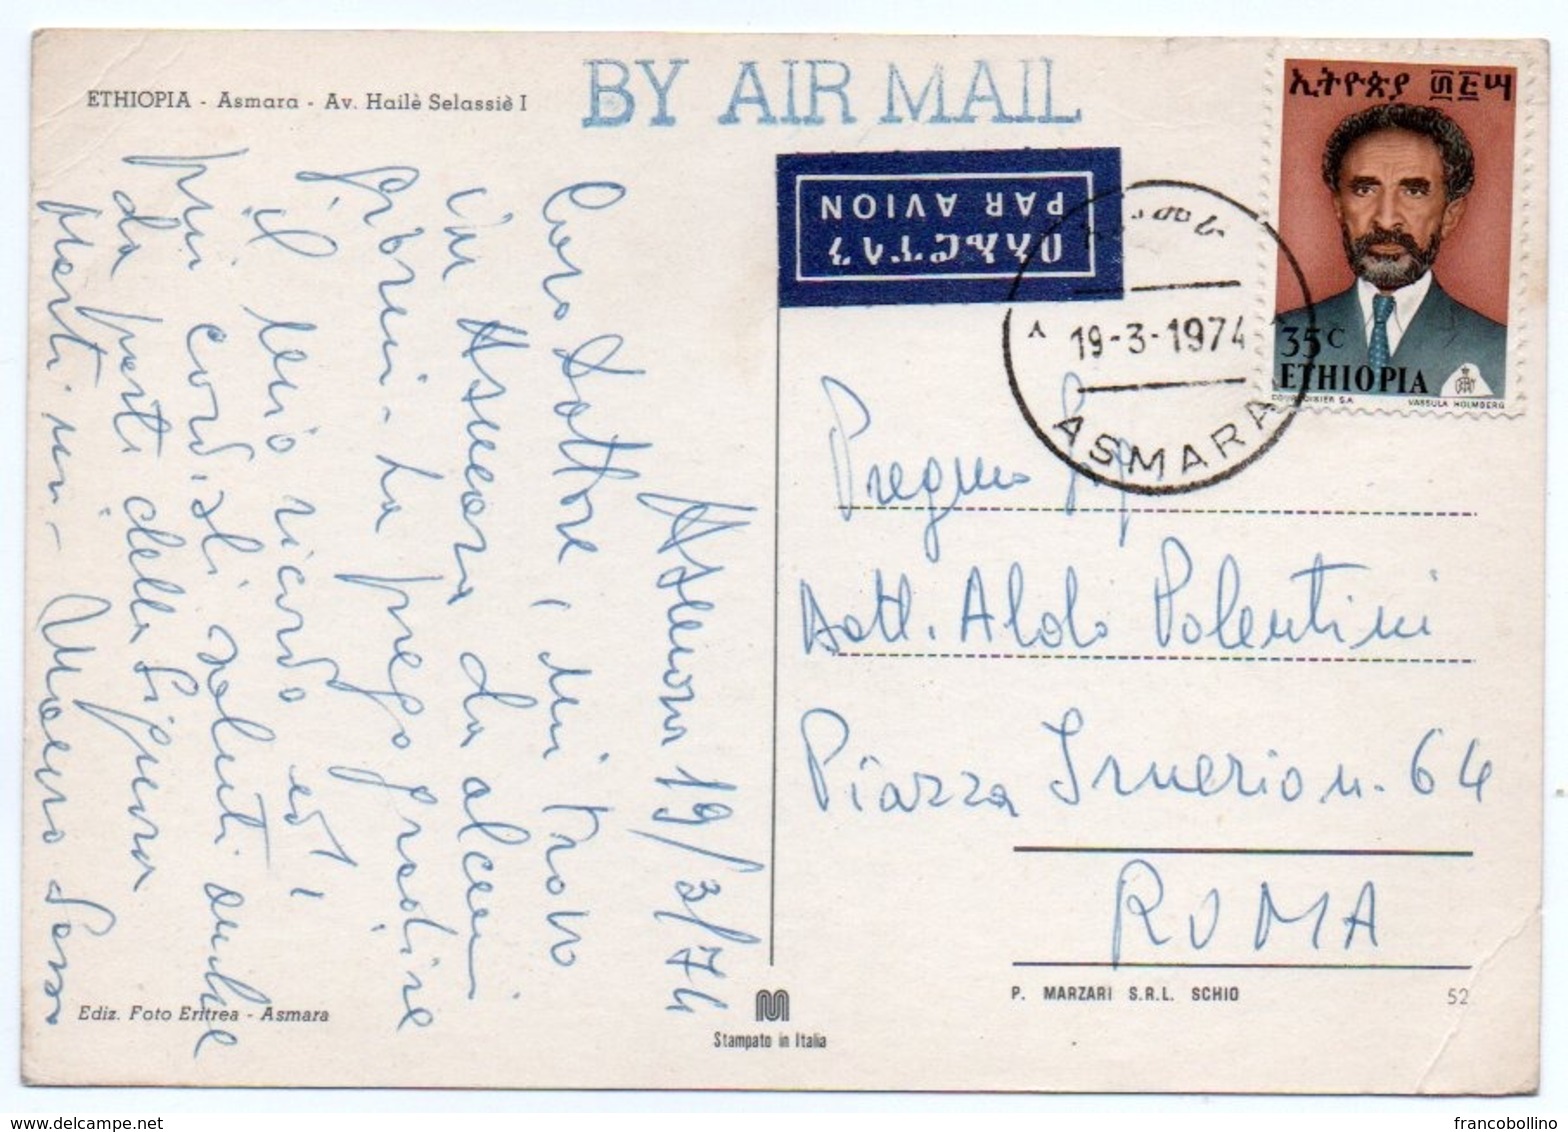 ETHIOPIA - Asmara - Av. Hailè Selassiè I
BY AIR MAIL
በአየር መልእክት
PAR AVION
ኢትዮጵያ ፴፭ሣ
35c
ETHIOPIA
COURVOISIER S.A.
VASSULA HOLMBERG
አሥመራ
19-3-1974
ASMARA
Asmara 19/3/74
Caro Dottore, mi trovo
in Asmara da alcuni
giorni - La prego gradire
il mio ricordo ed i
più cordiali saluti anche
da parte della Signora
Pregmo
Dott. Aldo Polentini
Piazza Irnerio n. 64
ROMA
Ediz. Foto Eritrea - Asmara
M
Stampato in Italia
P. MARZARI S.R.L. SCHIO
52
francobollino